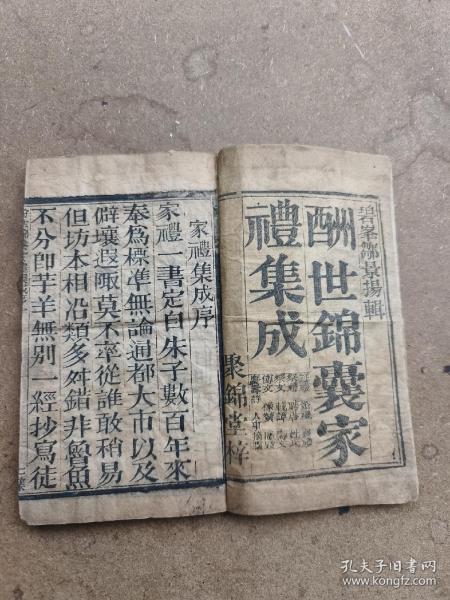 碧峯鄒景揚輯
酬世錦囊家
禮集成
聚錦堂梓
家禮集成序
家禮一書定自朱子數百年來
奉爲標準無論通都大市以及
僻壤遐陬莫不率從誰敢稍易
但坊本相沿類多舛錯非魯魚
不分卽芋羊無別一經抄寫徒
孔夫子旧书网
www.kongfz.com